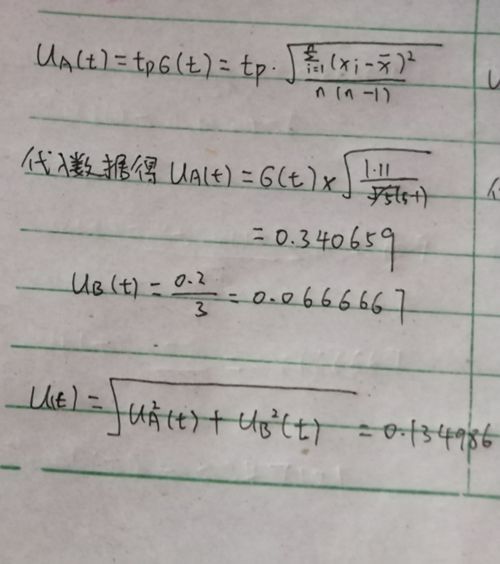 U_A(t) = t_p 6(t) = t_p · √(Σ_{i=1}^{n} (x_i − x̄)² / n(n−1))
代入数据得 U_A(t) = 6(t) × √(1.11 / 5(5-1))
= 0.340659
U_B(t) = 0.2/3 = 0.0666667
U(t) = √(U_A²(t) + U_B²(t)) = 0.134986